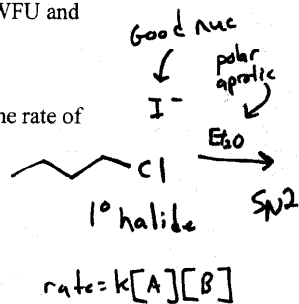 WFU and
Good nuc
polar
aprotic
I⁻
he rate of
Et₂O
Cl
SN2
1° halide
rate = k[A][B]